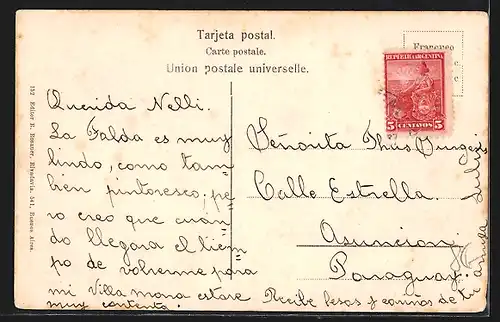 Tarjeta postal.
Carte postale.
Union postale universelle.
Franqueo
REPUBLICA ARGENTINA
5 CENTAVOS 5
152 Editor R. Rosauer, Rivadavia, 541, Buenos Aires.
Querida Nelli.
La Falda es muy
lindo, como tam-
bien pintoresco, pe-
ro creo que cuan-
do llegara el tiem-
po de volverme para
mi Villa mona estare
muy contenta.
Señorita
Calle Estrella.
Asuncion
Paraguay.
Recibe besos y cariños de tu amiga